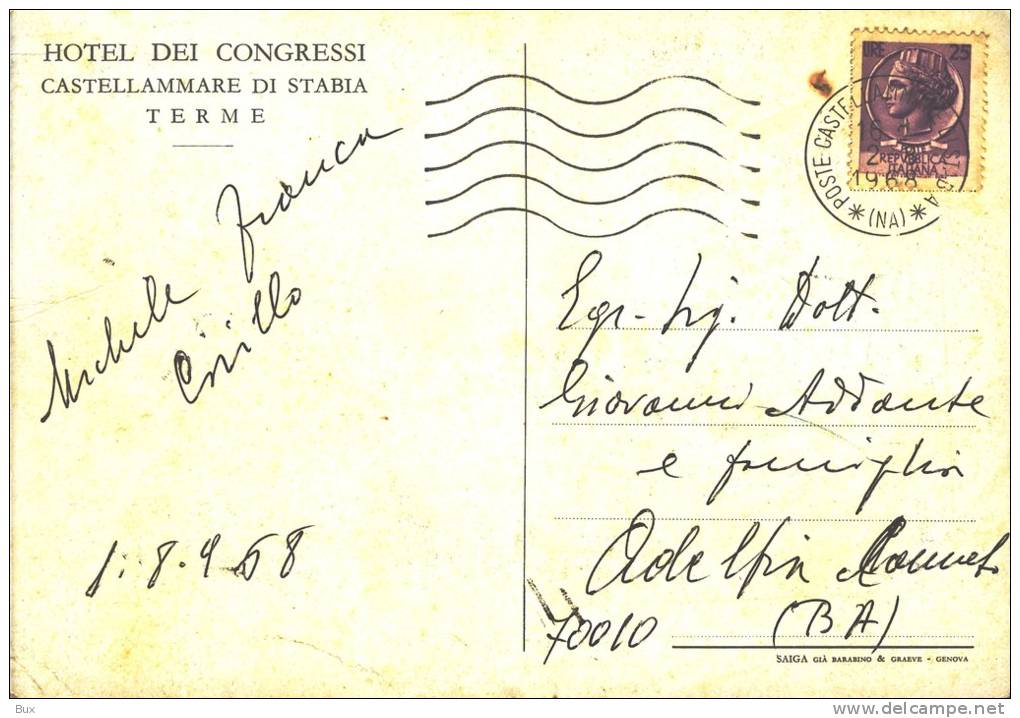 HOTEL DEI CONGRESSI
CASTELLAMMARE DI STABIA
TERME
Michele Franca
Cirillo
1.8.968
LIRE 25
REPVBBLICA
ITALIANA
POSTE CASTELLAM
19
2
1968
(NA)
Egr. Sig. Dott.
Giovanni Addante
e famiglia
Adelfia Canneto
70010 (BA)
SAIGA GIÀ BARABINO & GRAEVE - GENOVA
Bux
http://www.delcampe.net